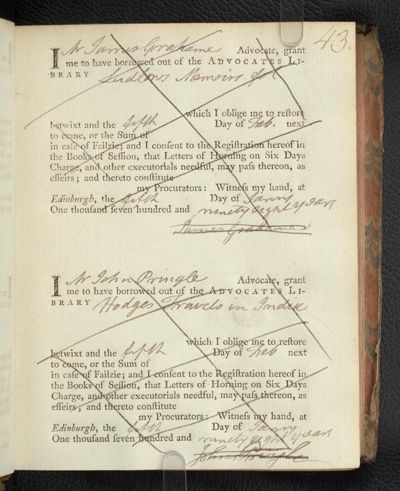 43.
I Mr James Grahame Advocate, grant
me to have borrowed out of the ADVOCATES LI-
BRARY Ludlows Memoirs
which I oblige me to restore
betwixt and the fifth Day of Feb. next
to come, or the Sum of
in case of Failzie; and I consent to the Registration hereof in
the Books of Session, that Letters of Horning on Six Days
Charge, and other executorials needful, may pass thereon, as
effeirs; and thereto constitute
my Procurators: Witness my hand, at
Edinburgh, the fifth Day of Janry
One thousand seven hundred and ninety eight years
James Grahame
I Mr John Pringle Advocate, grant
me to have borrowed out of the ADVOCATES LI-
BRARY Hodges Travels in India
which I oblige me to restore
betwixt and the fifth Day of Feb next
to come, or the Sum of
in case of Failzie; and I consent to the Registration hereof in
the Books of Session, that Letters of Horning on Six Days
Charge, and other executorials needful, may pass thereon, as
effeirs; and thereto constitute
my Procurators: Witness my hand, at
Edinburgh, the fifth Day of Janry
One thousand seven hundred and ninety eight years
John Pringle